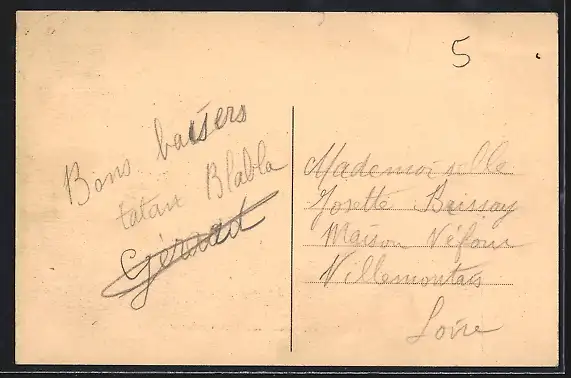 Bons baisers
tatan Blabla
Gérard
5
Mademoiselle
Josette Brissay
Maison Néfour
Villemontais
Loire